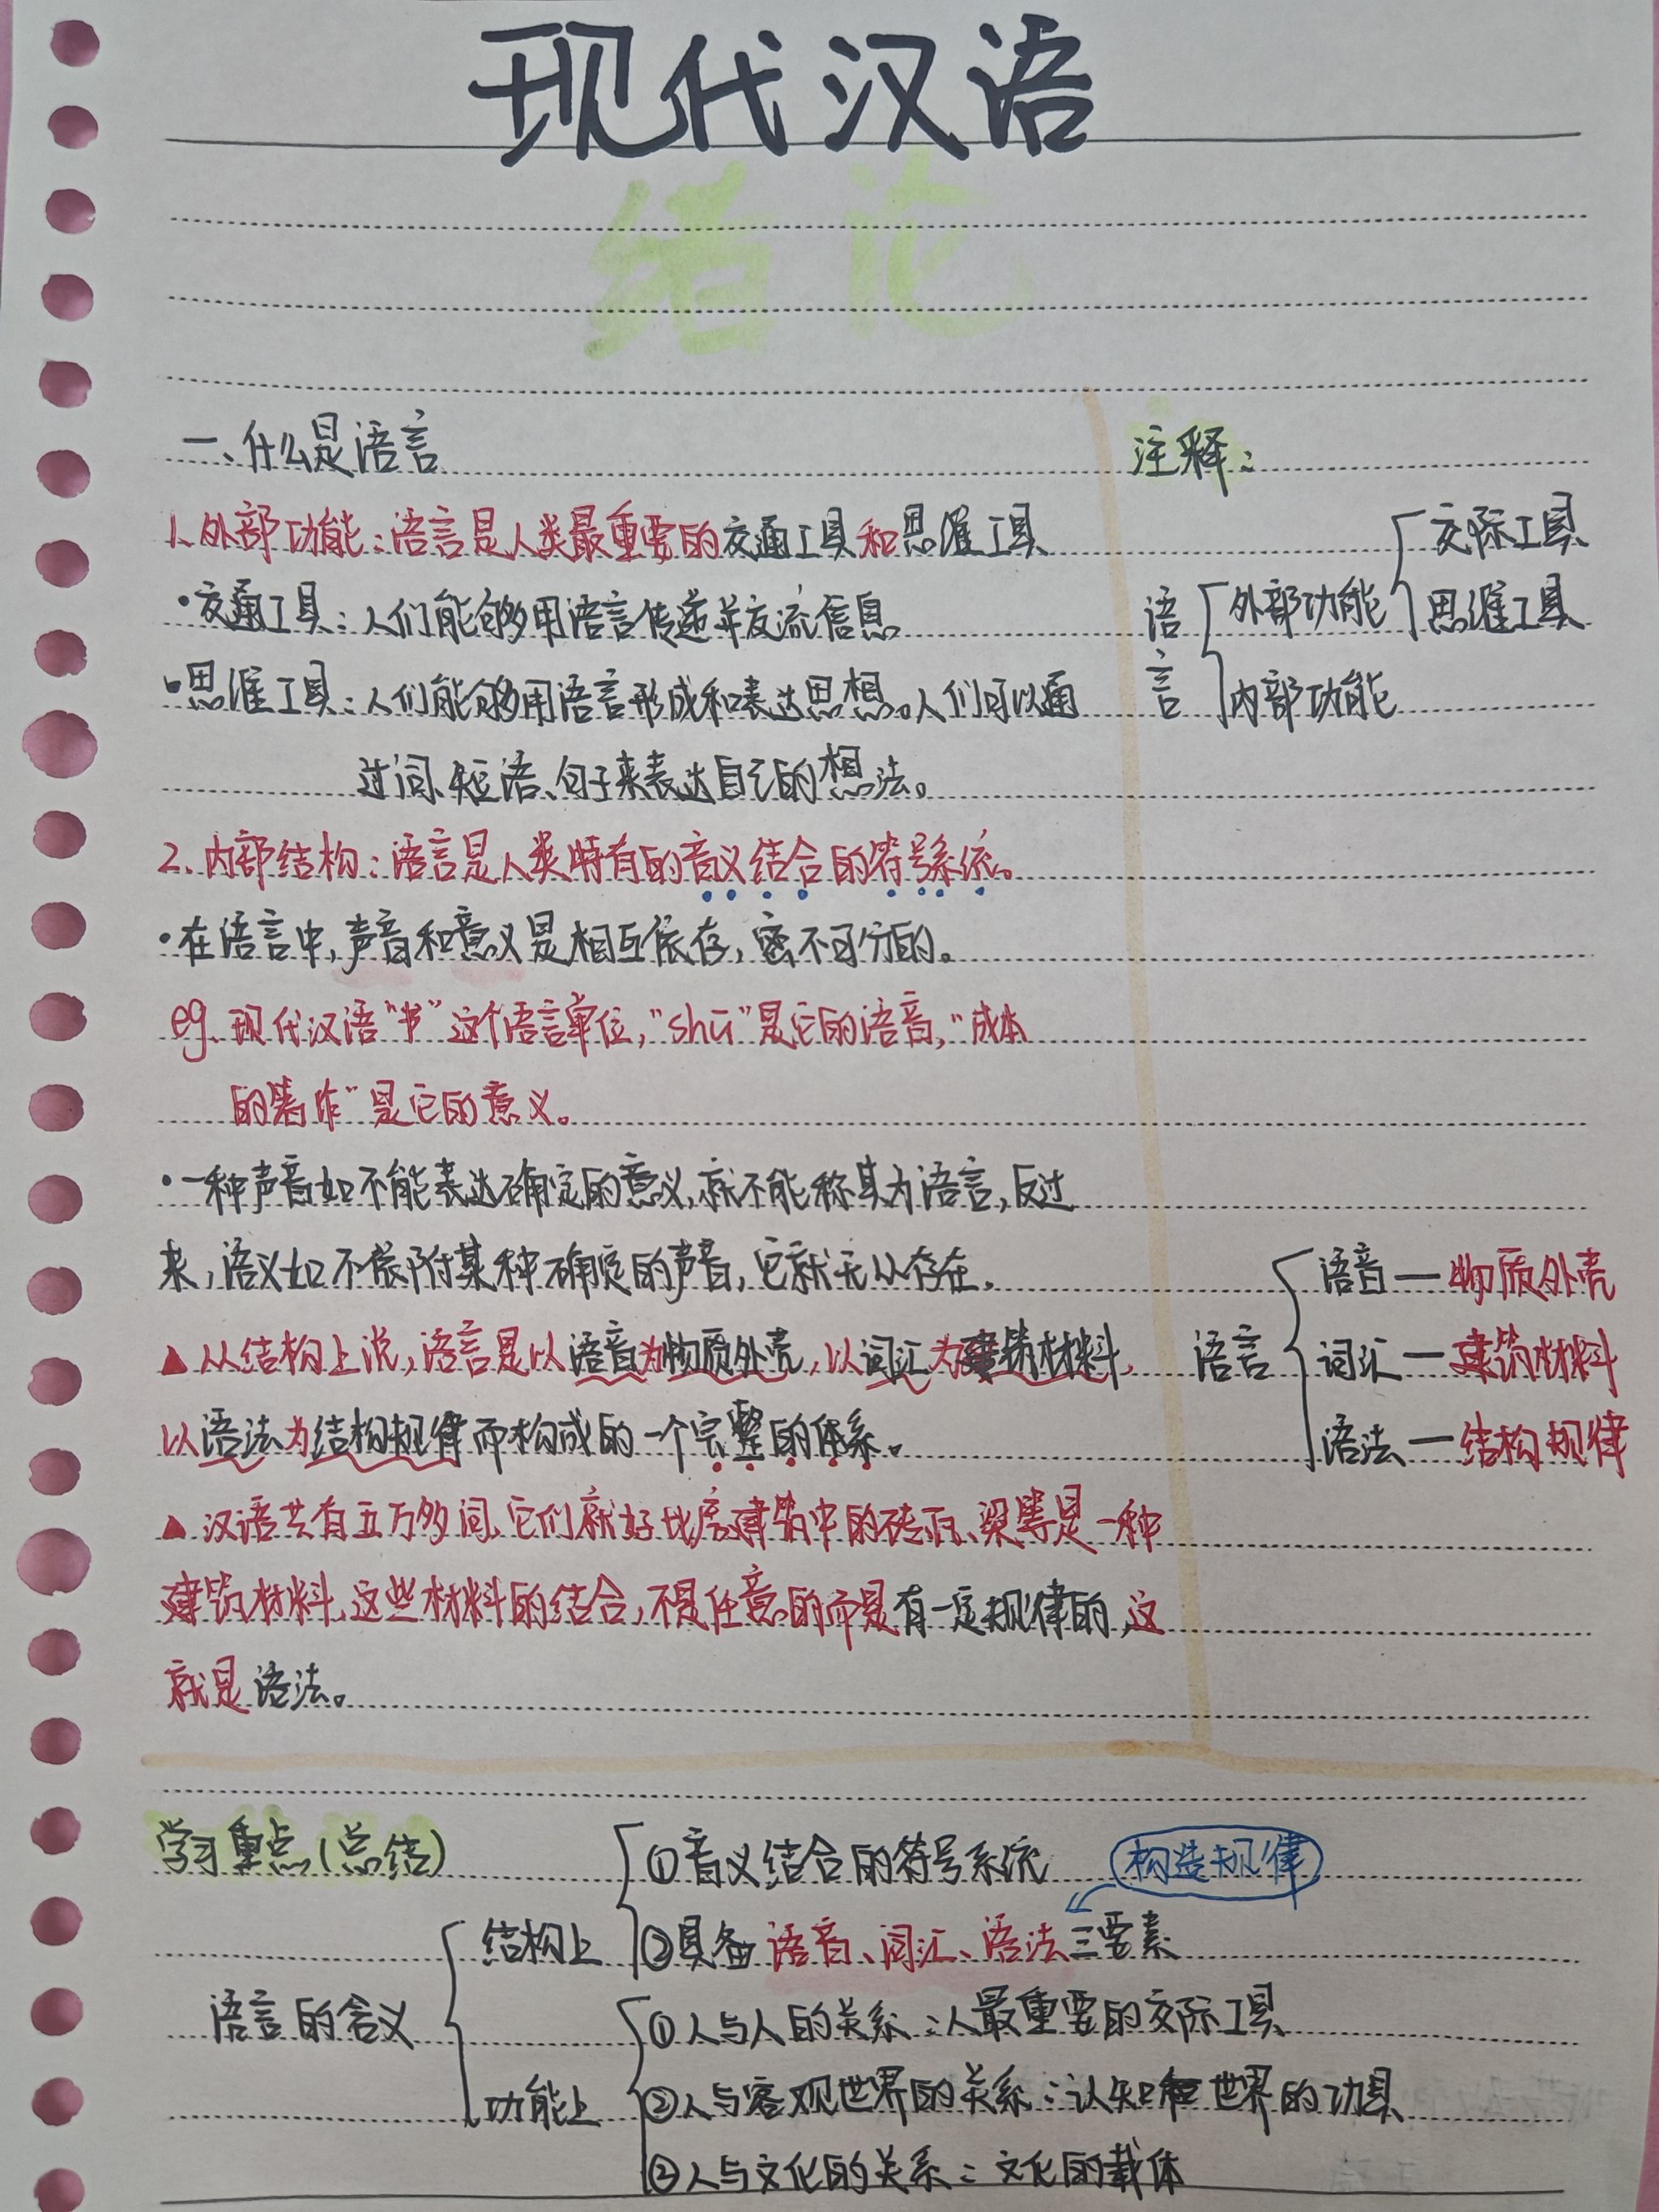 现代汉语
绪论
一、什么是语言
1.外部功能：语言是人类最重要的交通工具和思维工具
·交通工具：人们能够用语言传递并交流信息
·思维工具：人们能够用语言形成和表达思想。人们可以通
过词、短语、句子来表达自己的想法。
2.内部结构：语言是人类特有的音义结合的符号系统。
·在语言中，声音和意义是相互依存，密不可分的。
eg.现代汉语"书"这个语言单位，"shū"是它的语音，"成本
的著作"是它的意义。
·一种声音如不能表达确定的意义，就不能称其为语言，反过
来，语义如不依附某种确定的声音，它就无从存在。
▲从结构上说，语言是以语音为物质外壳，以词汇为建筑材料，
以语法为结构规律而构成的一个完整的体系。
▲汉语共有五万多词，它们就好比房建筑中的砖瓦、梁等是一种
建筑材料，这些材料的结合，不是任意的而是有一定规律的，这
就是语法。
注释：
语言
外部功能
交际工具
思维工具
内部功能
语言
语音—物质外壳
词汇—建筑材料
语法—结构规律
学习重点(总结)
语言的含义
结构上
①音义结合的符号系统
构造规律
②具备语音、词汇、语法三要素
功能上
①人与人的关系：人最重要的交际工具
②人与客观世界的关系：认知世界的功具
②人与文化的关系：文化的载体